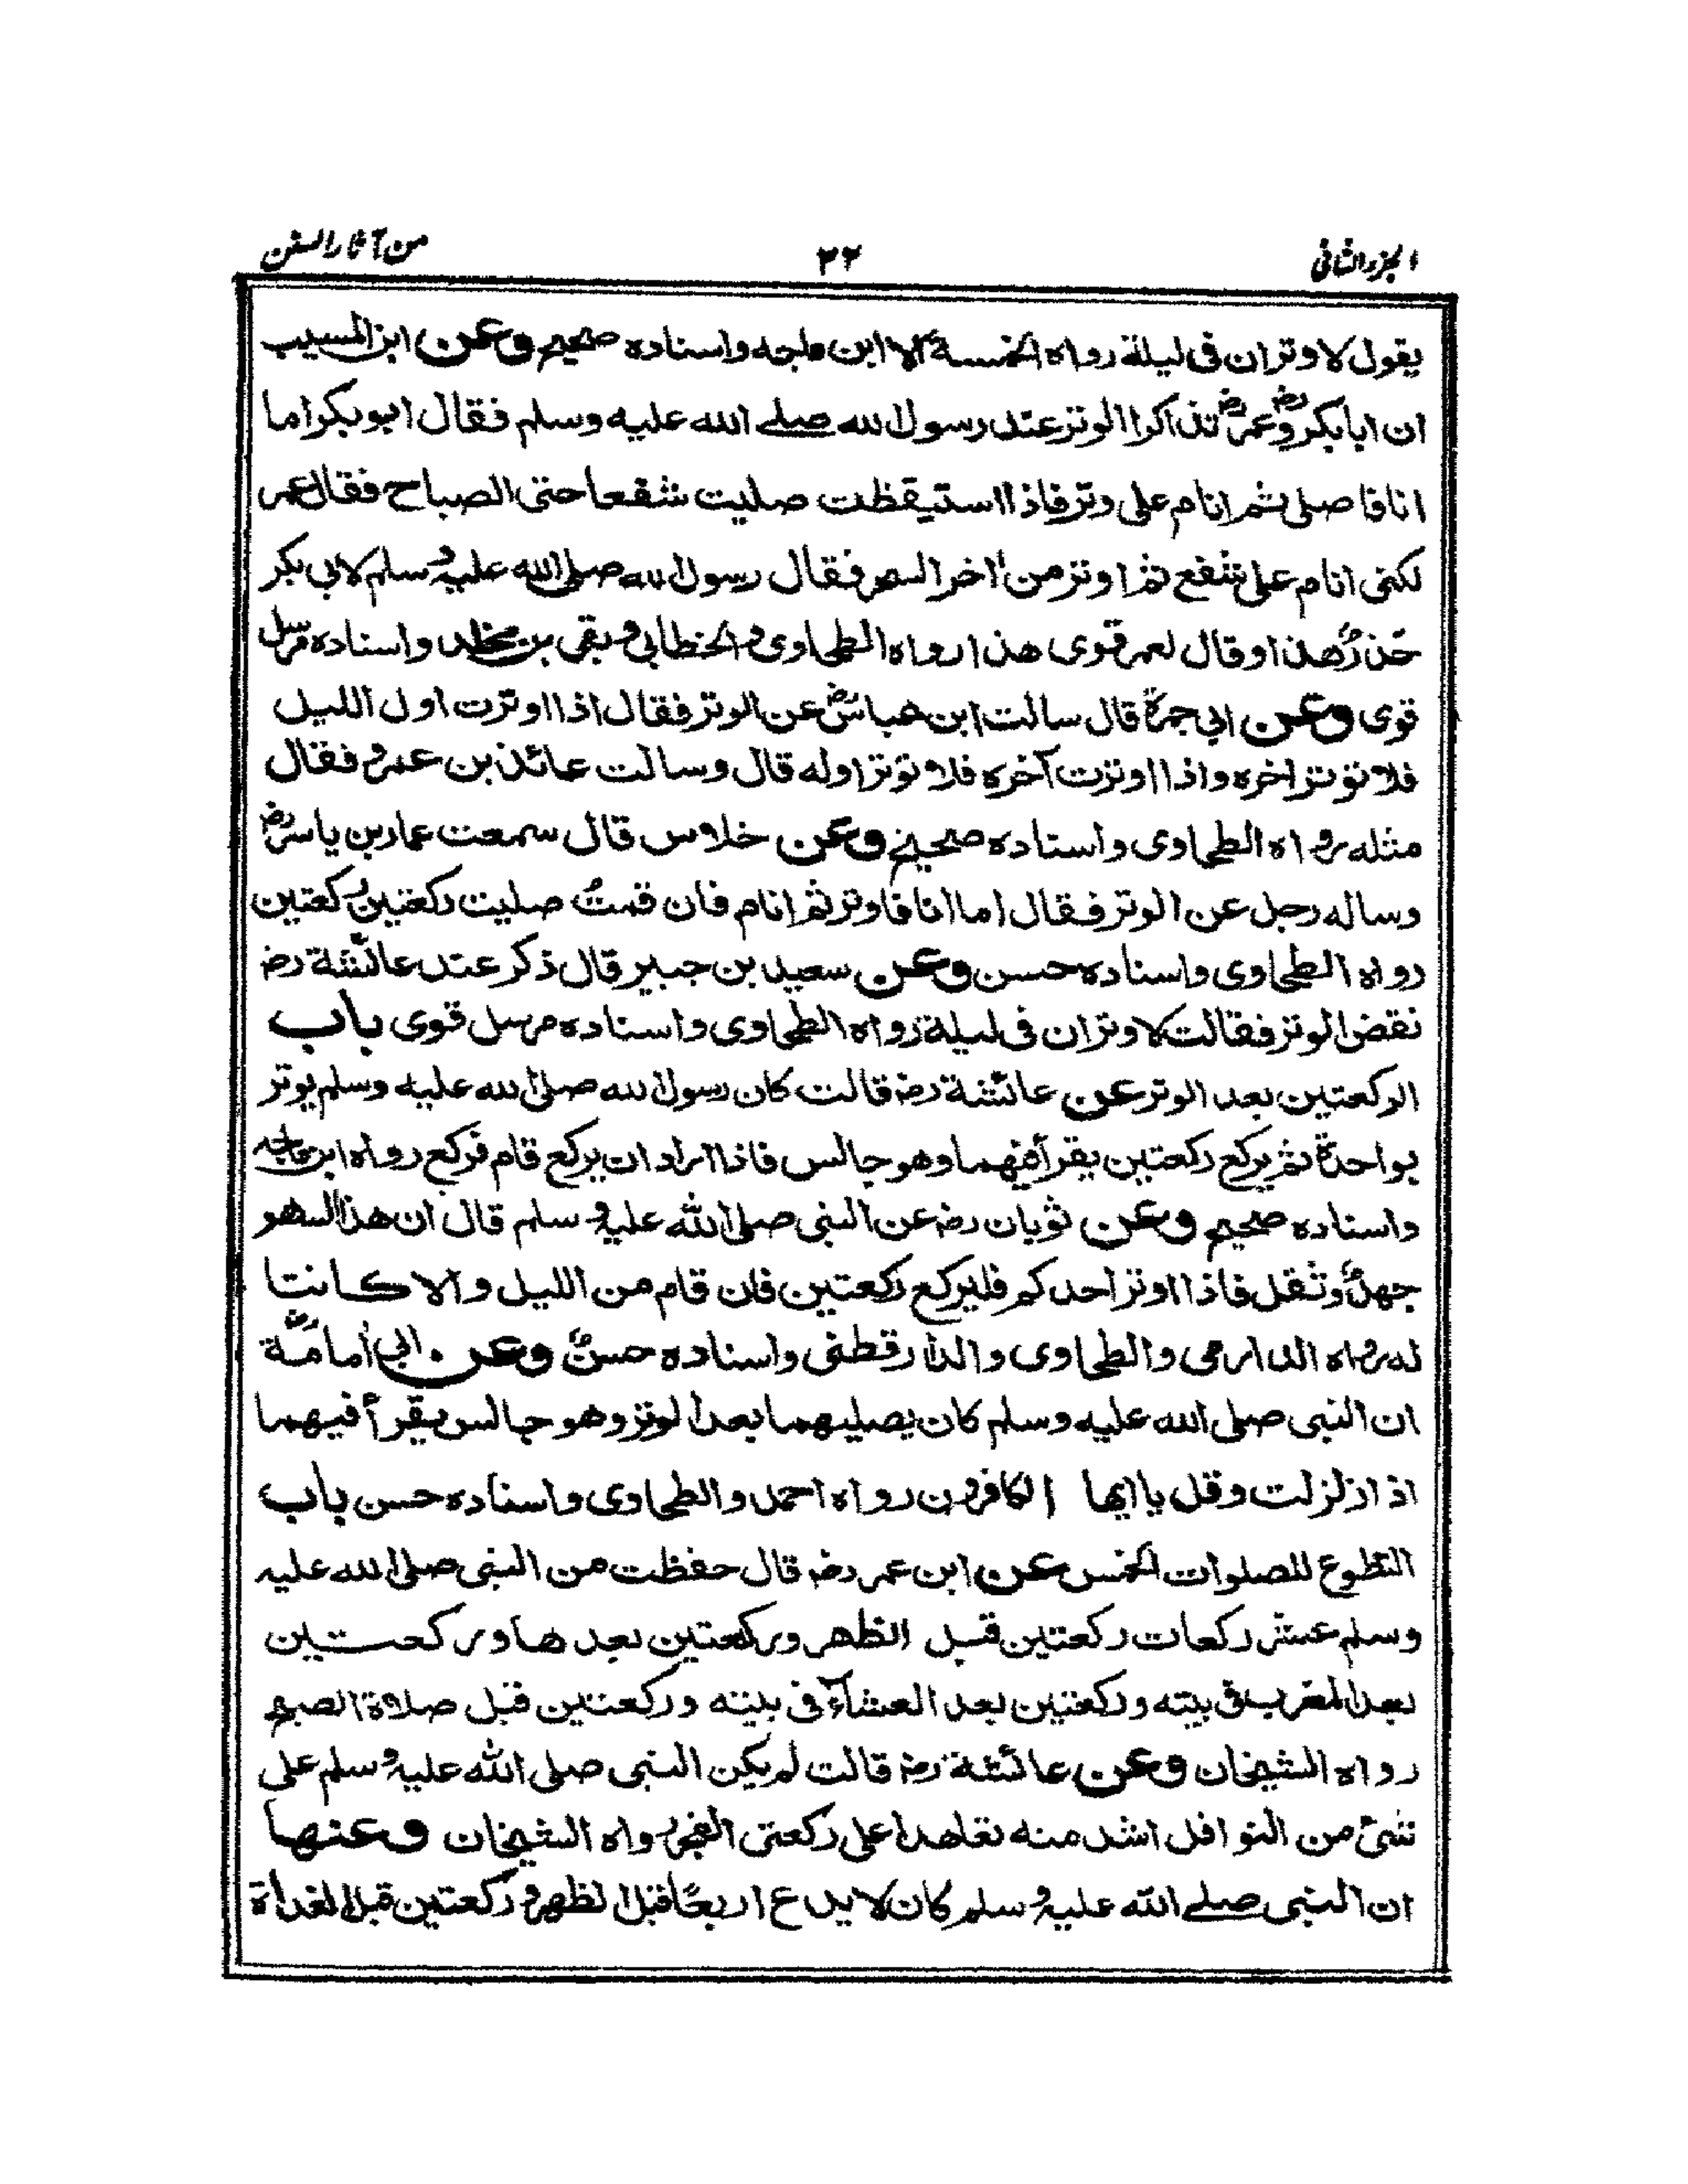 الجزء الثانی
٢٢
من آثار السنن
يقول لا وتران فى ليلة رواه الخمسة الا ابن ماجه واسناده صحيح وعن ابن المسيب
ان ابا بكر رض وعمر رض تذاكرا الوتر عند رسول الله صلے الله عليه وسلم فقال ابو بكر اما
انا فاصلى ثم انام على وتر فاذا استيقظت صليت شفعا حتى الصباح فقال عمر
لكنى انام على شفع ثم اوتر من اخر السحر فقال رسول الله صلى الله عليه وسلم لابى بكر
حذر هذا وقال لعمر قوى هذا رواه الطحاوى والخطابى وبقى بن مخلد واسناده مرسل
قوى وعن ابى جمرة قال سالت ابن عباس رض عن الوتر فقال اذا اوترت اول الليل
فلا توتر اخره واذا اوترت آخره فلا توتر اوله قال وسالت عائذ بن عمرو فقال
مثله رواه الطحاوى واسناده صحيح وعن خلاس قال سمعت عمار بن ياسر رض
وساله رجل عن الوتر فقال اما انا فاوتر ثم انام فان قمت صليت ركعتين ركعتين
رواه الطحاوى واسناده حسن وعن سعيد بن جبير قال ذكر عند عائشة رض
نقض الوتر فقالت لا وتران فى ليلة رواه الطحاوى واسناده مرسل قوى باب
الركعتين بعد الوتر عن عائشة رض قالت كان رسول الله صلى الله عليه وسلم يوتر
بواحدة ثم يركع ركعتين يقرأ فيهما وهو جالس فاذا اراد ان يركع قام فركع رواه ابن ماجه
واسناده صحيح وعن ثوبان رض عن النبى صلى الله عليه وسلم قال ان هذا السهر
جهد وثقل فاذا اوتر احدكم فليركع ركعتين فان قام من الليل والا كانتا
له رواه الدارمى والطحاوى والدارقطنى واسناده حسن وعن ابى أمامة رض
ان النبى صلى الله عليه وسلم كان يصليهما بعد الوتر وهو جالس يقرأ فيهما
اذا زلزلت وقل يا ايها الكافرون رواه احمد والطحاوى واسناده حسن باب
التطوع للصلوات الخمس عن ابن عمر رض قال حفظت من النبى صلى الله عليه
وسلم عشر ركعات ركعتين قبل الظهر وركعتين بعدها وركعتين
بعد المغرب فى بيته وركعتين بعد العشاء فى بيته وركعتين قبل صلاة الصبح
رواه الشيخان وعن عائشة رض قالت لم يكن النبى صلى الله عليه وسلم على
شىء من النوافل اشد منه تعاهدا على ركعتى الفجر رواه الشيخان وعنها
ان النبى صلے الله عليه وسلم كان لا يدع اربعًا قبل الظهر وركعتين قبل الغداة